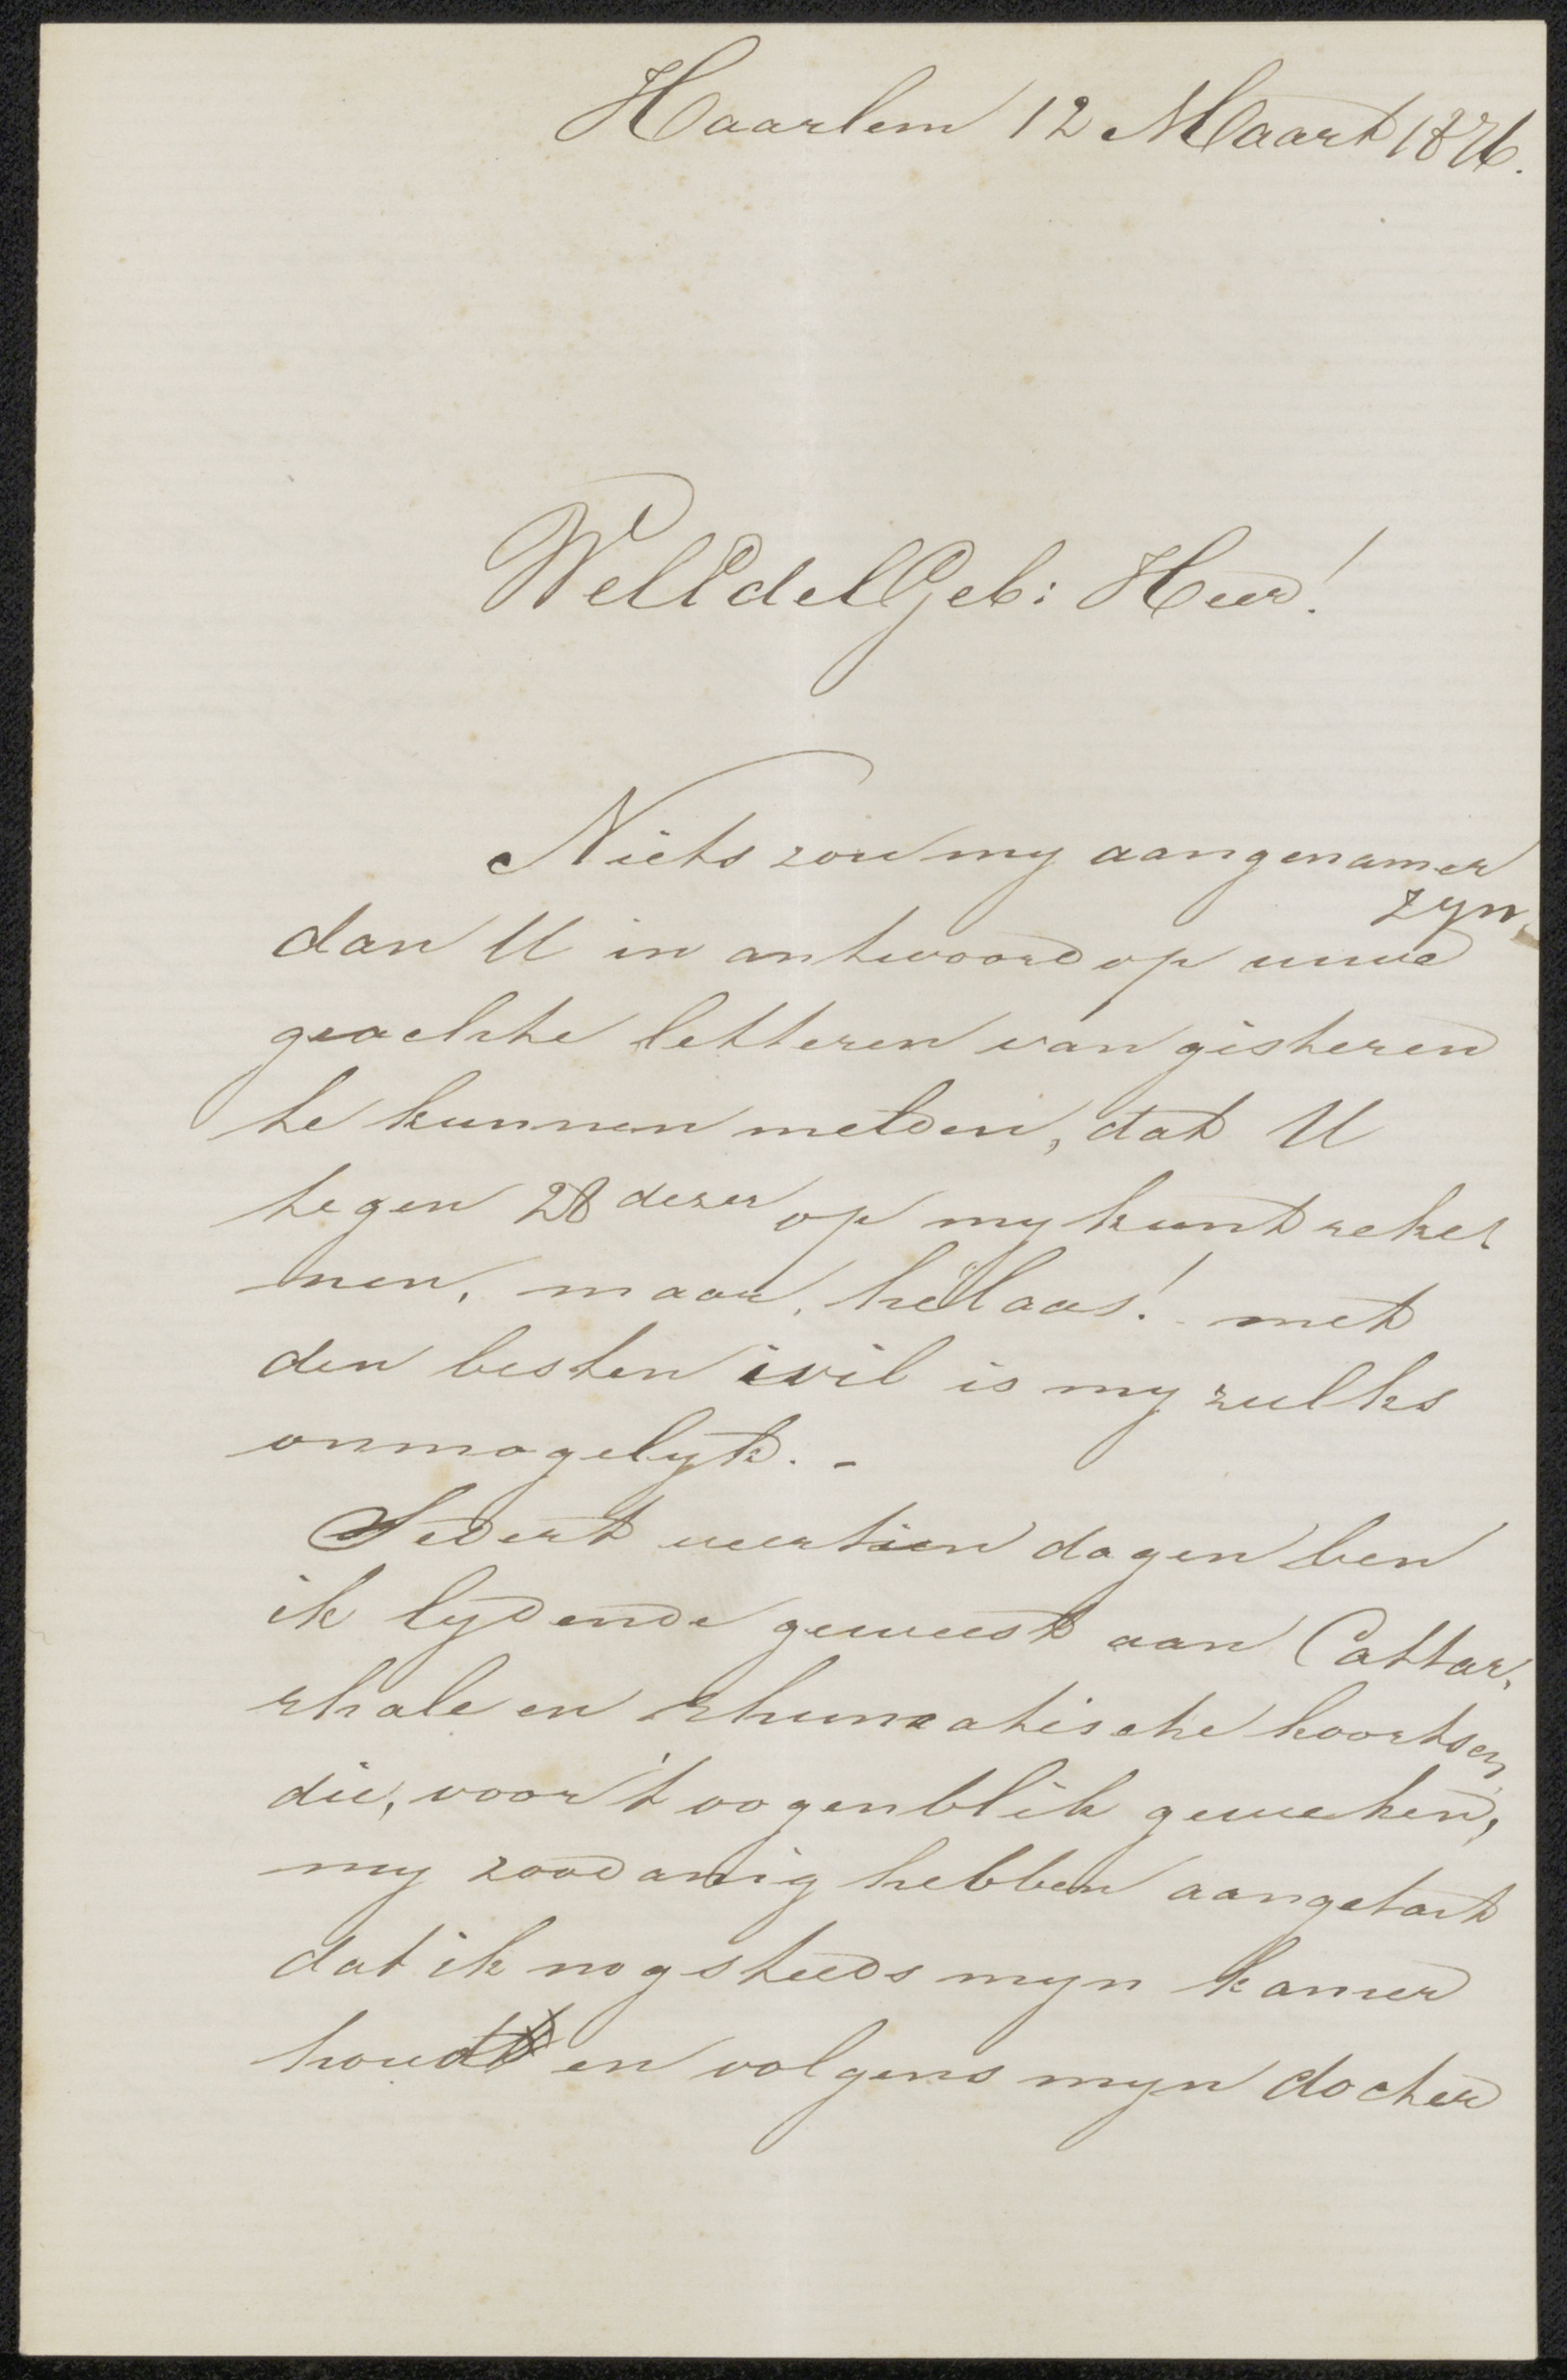 Haarlem 12 Maart 1876.
WelEdelGeb: Heer!
Niets zou my aangenamer
zyn,
dan U in antwoord op uwe
geachte letteren van gisteren
te kunnen melden, dat U
tegen 28 dezer op my kunt reke
nen, maar, hélaas! met
den besten wil is my zulks
onmogelyk. -
Sedert veertien dagen ben
ik lydende geweest aan Cattar,
rhale en rhumatische koortsen
die, voor 't oogenblik geweken,
my zoodanig hebben aangetast
dat ik nog steeds myn kamer
houd en volgens myn docter